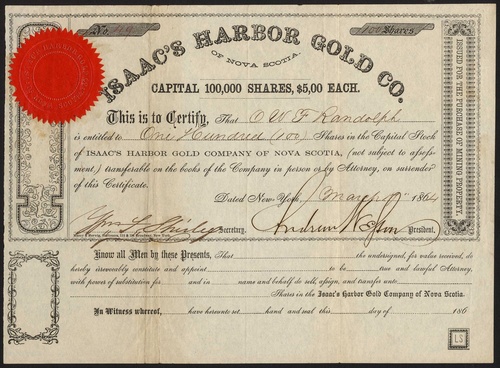 No. 49
100 Shares
ISAAC'S HARBOR GOLD CO.
OF NOVA SCOTIA.
CAPITAL 100,000 SHARES, $5,00 EACH.
This is to Certify, That O W F Randolph
is entitled to One Hundred (100) Shares in the Capital Stock
of ISAAC'S HARBOR GOLD COMPANY OF NOVA SCOTIA, (not subject to assess-
ment) transferable on the books of the Company in person or by Attorney, on surrender
of this Certificate.
Dated New-York, March 1864
Secretary. President.
ISSUED FOR THE PURCHASE OF MINING PROPERTY.
Know all Men by these Presents, That the undersigned, for value received, do
hereby irrevocably constitute and appoint to be true and lawful Attorney,
with power of substitution for and in name and behalf do sell, assign, and transfer unto
Shares in the Isaac's Harbor Gold Company of Nova Scotia.
In Witness whereof, have hereunto set hand and seal this day of 186
LS